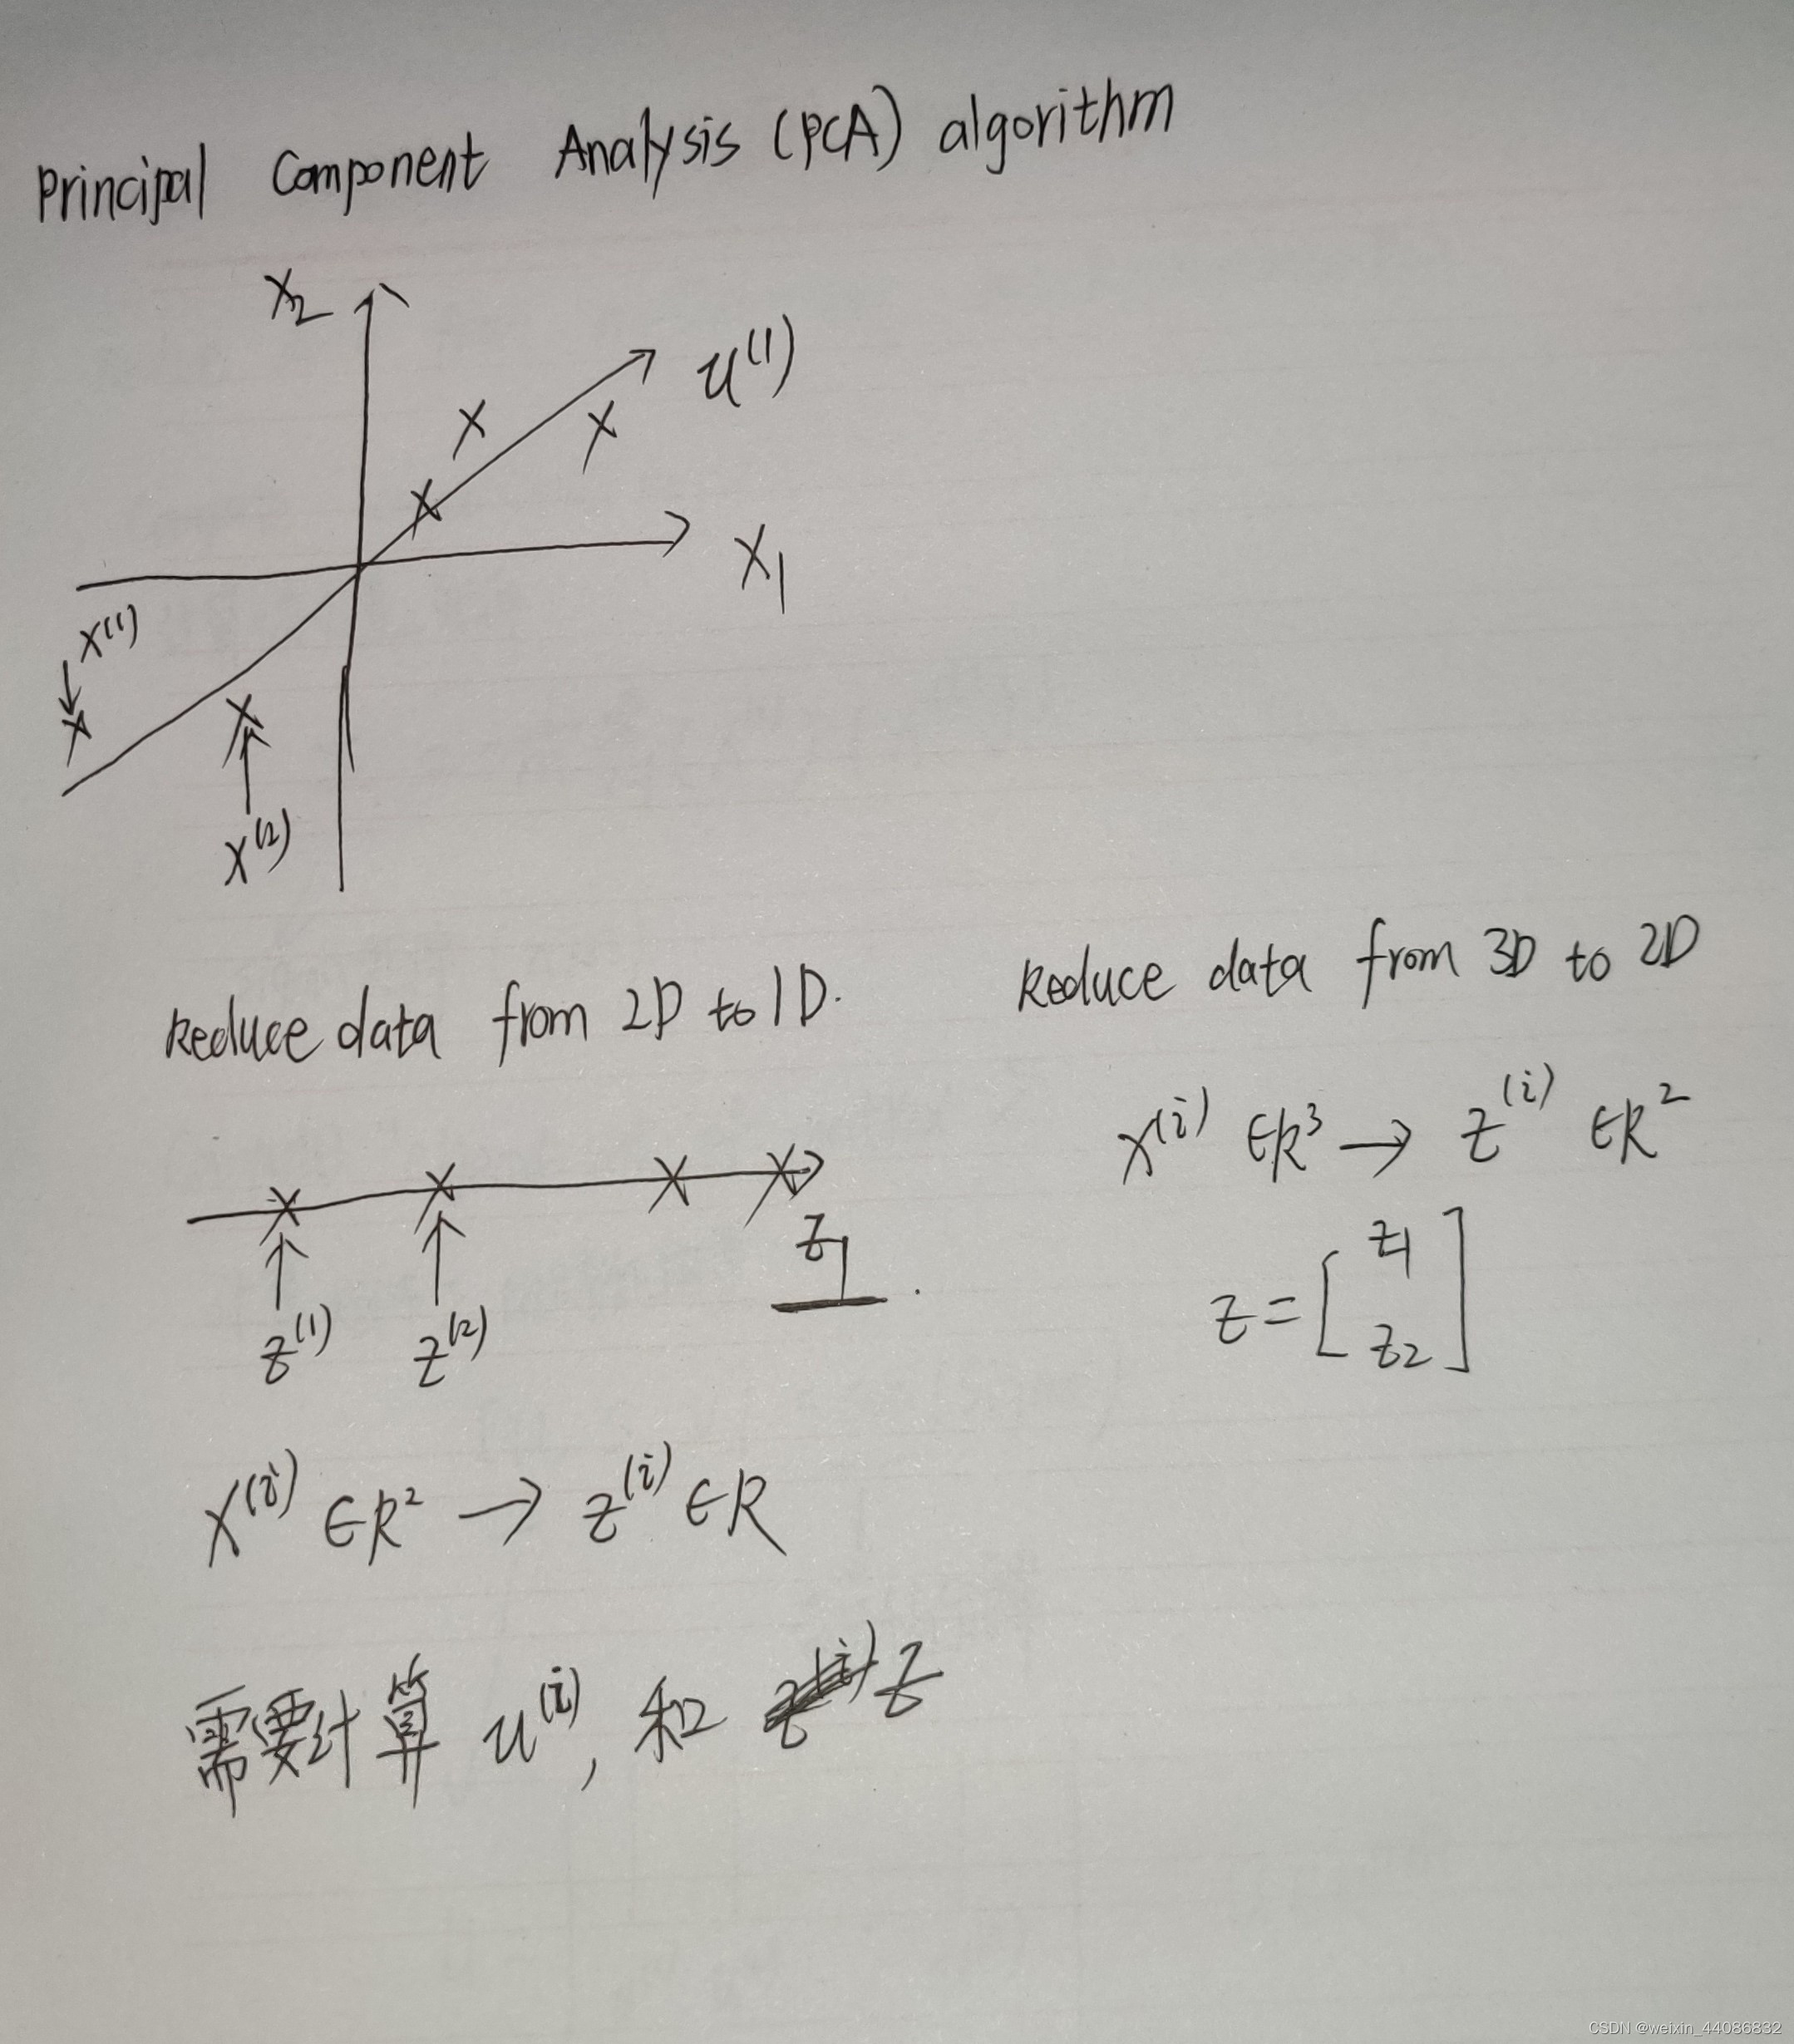 Principal Component Analysis (PCA) algorithm
X₂
u⁽¹⁾
X₁
X⁽¹⁾
X⁽²⁾
Reduce data from 2D to 1D.
Z₁
Z⁽¹⁾ Z⁽²⁾
X⁽ⁱ⁾ ∈R² → Z⁽ⁱ⁾ ∈R
Reduce data from 3D to 2D
X⁽ⁱ⁾ ∈R³ → Z⁽ⁱ⁾ ∈R²
Z = [ Z1
Z2 ]
需要计算 u⁽ⁱ⁾, 和 Z
CSDN @weixin_44086832